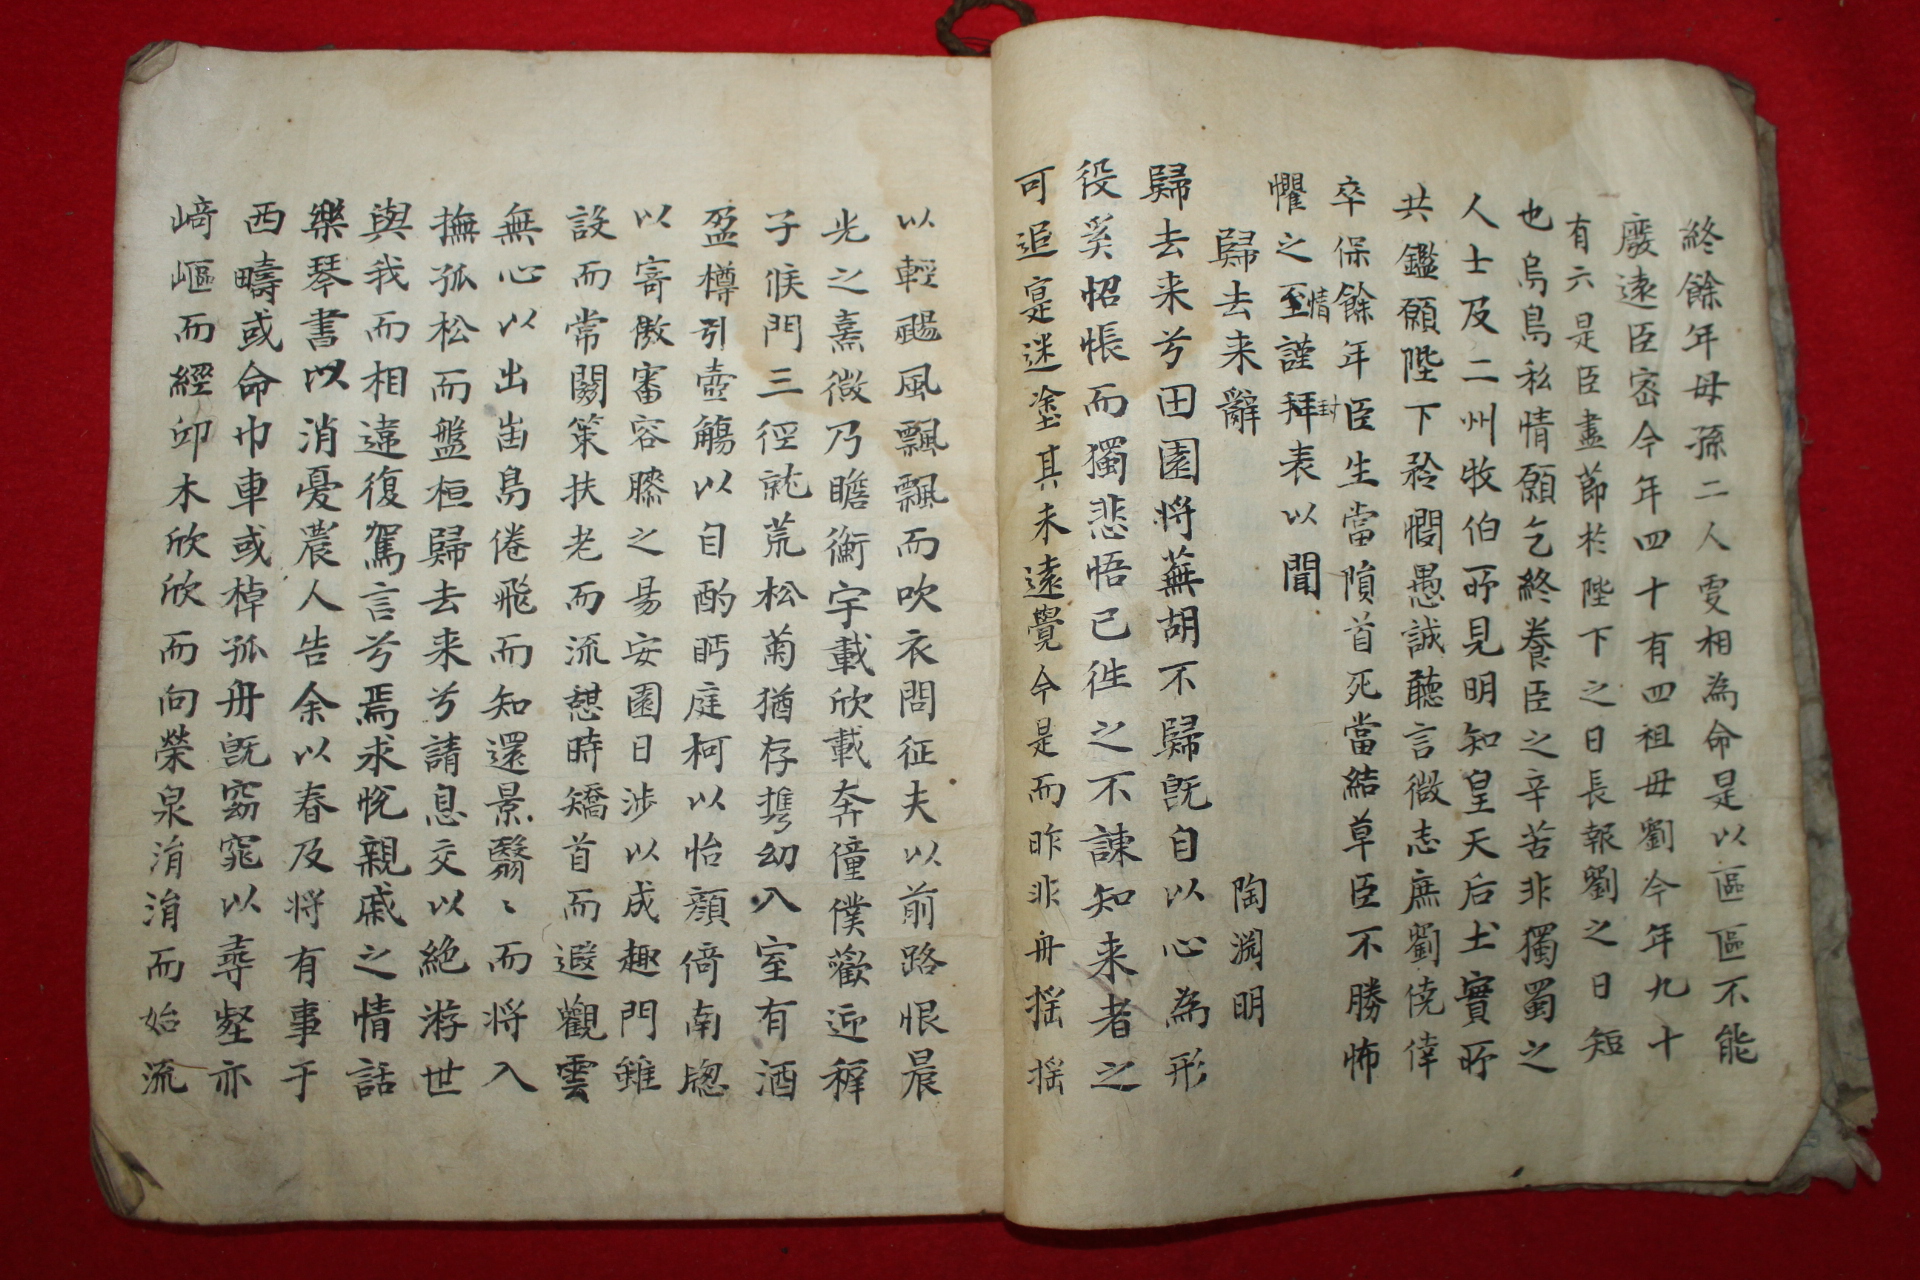 終餘年母孫二人更相為命是以區區不能
廢遠臣密今年四十有四祖母劉今年九十
有六是臣盡節於陛下之日長報劉之日短
也烏鳥私情願乞終養臣之辛苦非獨蜀之
人士及二州牧伯所見明知皇天后土實所
共鑑願陛下矜憫愚誠聽言微志庶劉僥倖
卒保餘年臣生當隕首死當結草臣不勝怖
懼之至情謹拜封表以聞
歸去来辭 陶淵明
歸去来兮田園将蕪胡不歸旣自以心為形
役奚怊悵而獨悲悟已徃之不諫知来者之
可追寔迷塗其未遠覺今是而昨非舟揺揺
以輕颺風飄飄而吹衣問征夫以前路恨晨
光之熹微乃瞻衡宇載欣載奔僮僕歡迎稚
子候門三徑就荒松菊猶存携幼入室有酒
盈樽引壺觴以自酌眄庭柯以怡顔倚南窓
以寄傲審容膝之易安園日涉以成趣門雖
設而常關策扶老而流憇時矯首而遐觀雲
無心以出岫鳥倦飛而知還景翳〻而将入
撫孤松而盤桓歸去来兮請息交以絶游世
與我而相違復駕言兮焉求悅親戚之情話
樂琴書以消憂農人告余以春及将有事于
西疇或命巾車或棹孤舟旣窈窕以尋壑亦
崎嶇而經邱木欣欣而向榮泉涓涓而始流